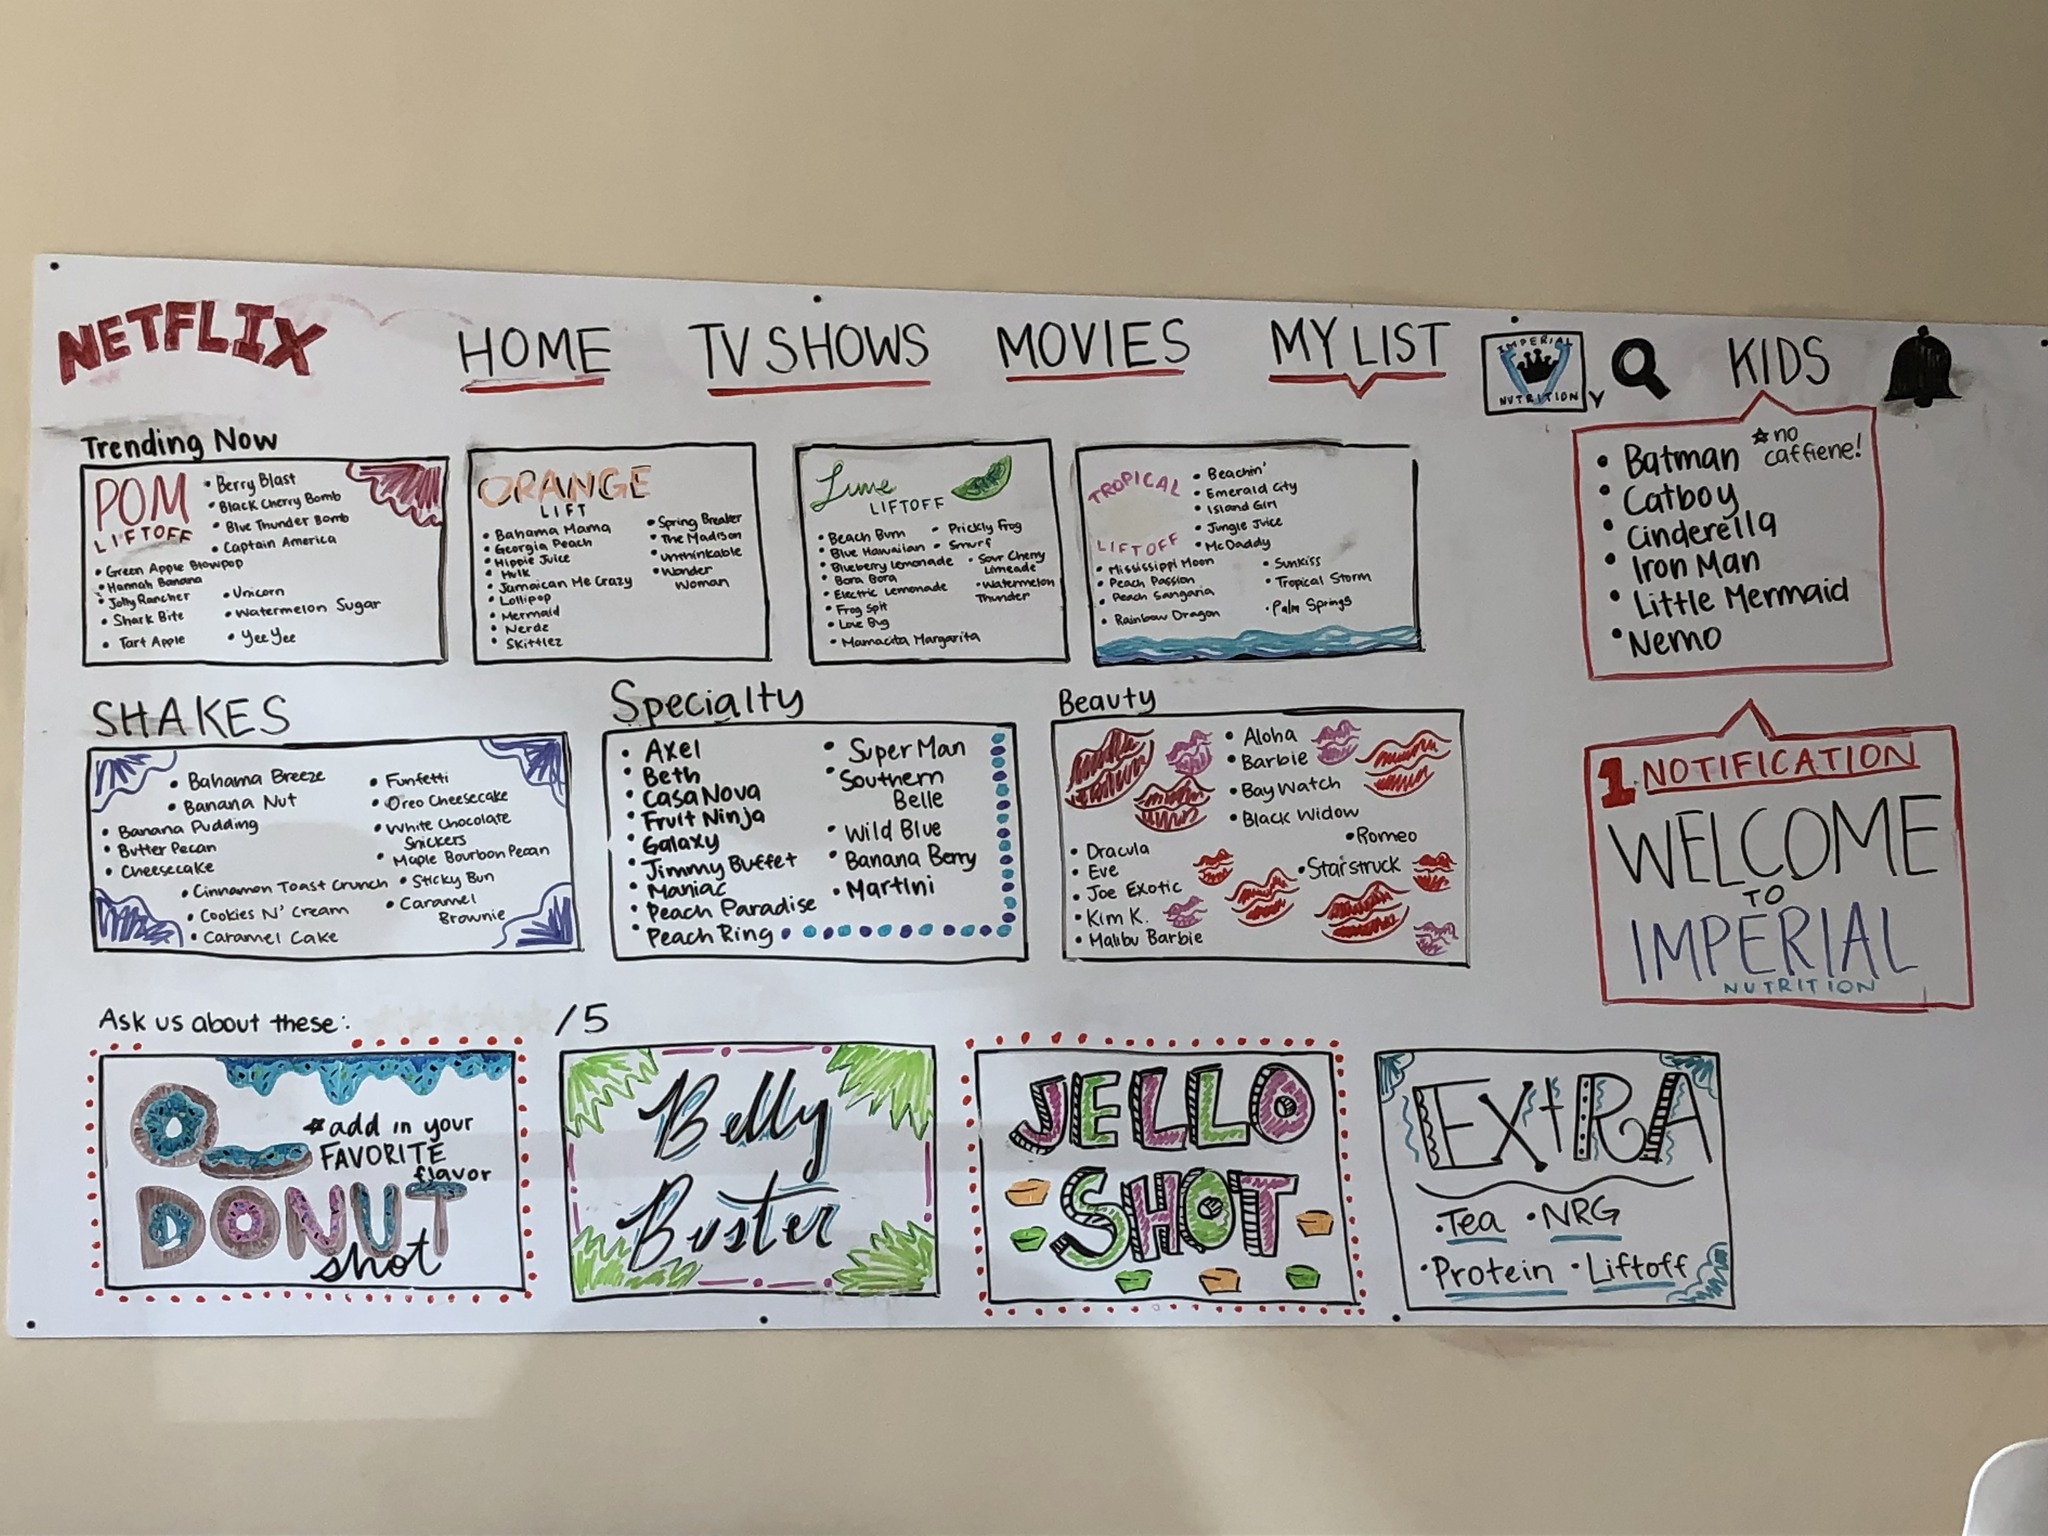 NETFLIX
HOME
TV SHOWS
MOVIES
MY LIST
IMPERIAL
NUTRITION
KIDS
Trending Now
POM
LIFTOFF
• Berry Blast
• Black Cherry Bomb
• Blue Thunder Bomb
• Captain America
• Green Apple Blowpop
• Hannah Banana
• Jolly Rancher
• Shark Bite
• Tart Apple
• Unicorn
• Watermelon Sugar
• Yee Yee
ORANGE
LIFT
• Bahama Mama
• Georgia Peach
• Hippie Juice
• Hulk
• Jamaican Me Crazy
• Lollipop
• Mermaid
• Nerdz
• Skittlez
• Spring Breaker
• The Madison
• Unthinkable
• Wonder
Woman
Lime
LIFTOFF
• Beach Bum
• Blue Hawaiian
• Blueberry Lemonade
• Bora Bora
• Electric Lemonade
• Frog Spit
• Love Bug
• Mamacita Margarita
• Prickly Frog
• Smurf
• Sour Cherry
Limeade
• Watermelon
Thunder
TROPICAL
LIFTOFF
• Beachin'
• Emerald City
• Island Girl
• Jungle Juice
• McDaddy
• Mississippi Moon
• Peach Passion
• Peach Sangaria
• Rainbow Dragon
• Sunkiss
• Tropical Storm
• Palm Springs
• Batman
☆ no
caffiene!
• Catboy
• Cinderella
• Iron Man
• Little Mermaid
• Nemo
SHAKES
• Bahama Breeze
• Banana Nut
• Banana Pudding
• Butter Pecan
• Cheesecake
• Cinnamon Toast Crunch
• Cookies N' Cream
• Caramel Cake
• Funfetti
• Oreo Cheesecake
• White Chocolate
Snickers
• Maple Bourbon Pecan
• Sticky Bun
• Caramel
Brownie
Specialty
• Axel
• Beth
• CasaNova
• Fruit Ninja
• Galaxy
• Jimmy Buffet
• Maniac
• Peach Paradise
• Peach Ring
• Super Man
• Southern
Belle
• Wild Blue
• Banana Berry
• Martini
Beauty
• Aloha
• Barbie
• Bay Watch
• Black Widow
• Romeo
• Starstruck
• Dracula
• Eve
• Joe Exotic
• Kim K.
• Malibu Barbie
1 NOTIFICATION
WELCOME
TO
IMPERIAL
NUTRITION
Ask us about these:
/5
☆ add in your
FAVORITE
flavor
DONUT
shot
Belly
Buster
JELLO
SHOT
EXtRA
• Tea • NRG
• Protein • Liftoff